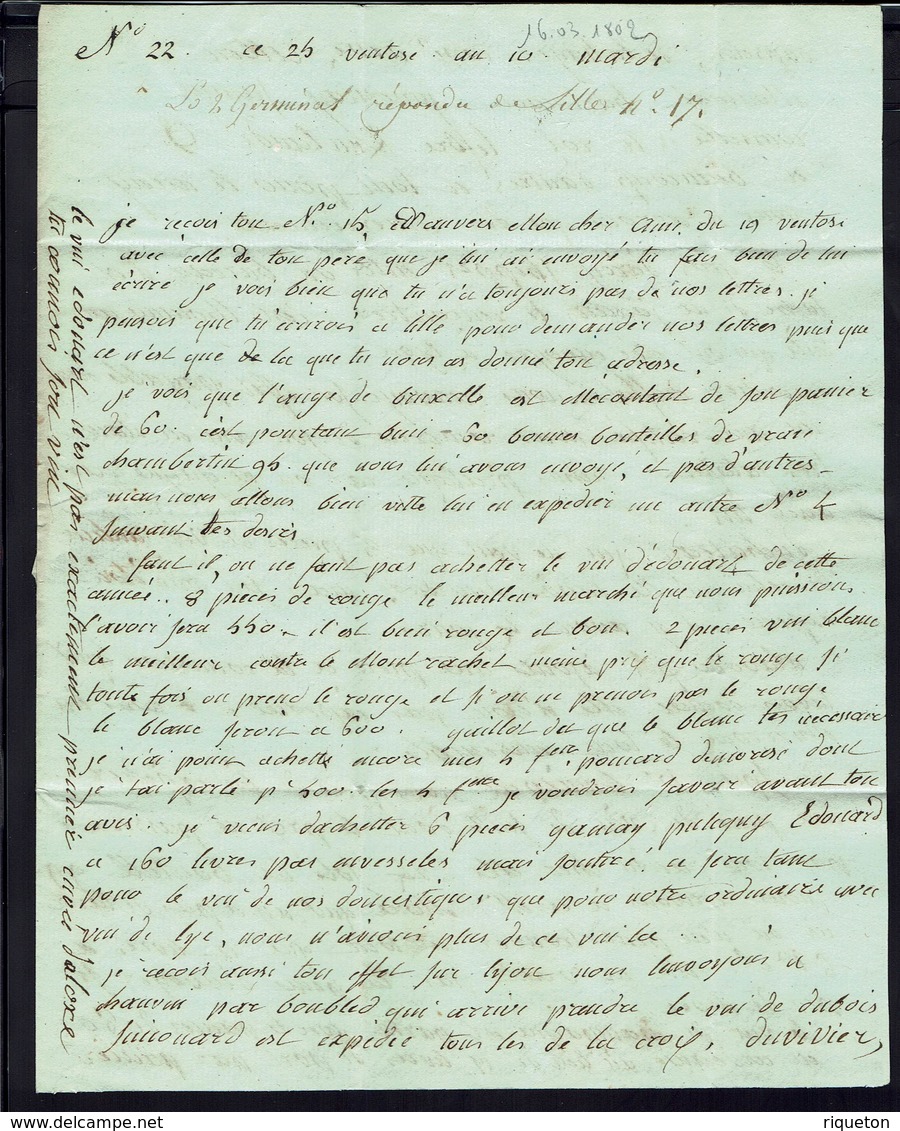 16.03.1802
N° 22. ce 25 ventose an 10 mardi
Le 2 Germinal répondu de Lille n° 17.
je reçois ton N° 15 D'anvers Mon cher Ami du 19 ventose
avec celle de ton père que je lui ai envoyé tu fais bien de lui
écrire je vois bien que tu n'a toujours pas de nos lettres. je
pensois que tu écrirois a lille pour demander nos lettres puis que
ce n'est que de la que tu nous as donné ton adresse.
je vois que l'ange de bruxelle est Mécontant de son panier
de 60. c'est pourtant bien 60 bonnes bouteilles de vrai
chambertin 95. que nous lui avons envoyé, et pas d'autres
mais nous allons bien vitte lui en expedier un autre N° 4
suivant tes desirs
faut il, ou ne faut pas achetter le vin d'edouart de cette
année. 8 pieces de rouge le meilleur marché que nous puission
l'avoir sera 550. il est bien rouge et bon. 2 pieces vin blanc
le meilleur contre le Mont rachet meme prix que le rouge si
toute fois on prend le rouge et si on ne prenois pas le rouge
le blanc seroit a 600. guillot dit que le blanc tes nécessaire
je n'ai point achetté encore mes 4 feuᵗᵗᵉ pomard demorose dont
je t'ai parlé p' 400. les 4 feuᵗᵗᵉ je voudrois savoir avant ton
avis. je viens d'achetter 6 pieces gamay puligny Edouard
a 160 livres pas envesselés mais soutiré, ce sera tant
pour le vin de nos domestiques que pour notre ordinaire avec
vin de lye, nous n'avions plus de ce vin la
je reçois aussi ton effet sur lyon nous l'envoyons a
chauvin par boubled qui arrive prandre le vin de dubois
Junouard est expédié tous les de la croix, duvivier,
le vin edouart n'est pas exactement premier cuvée d'aloxe
tu connois son vin
riqueton